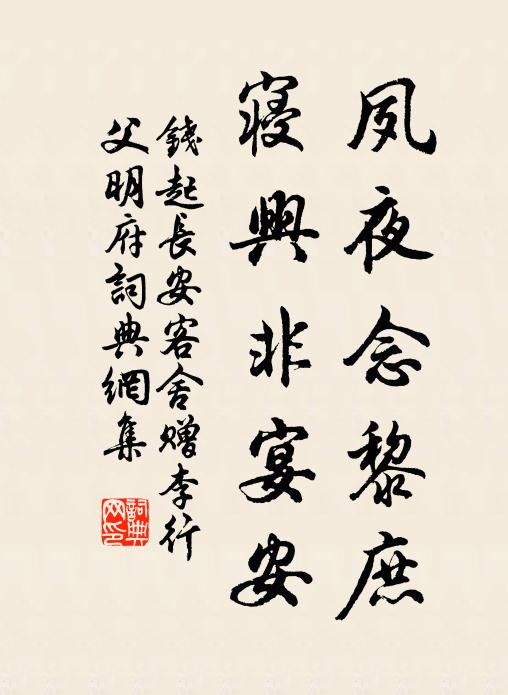 夙夜念黎庶
寝興非宴安
錢起長安客舍赠李行
父明府詞典網集
詞典
网印